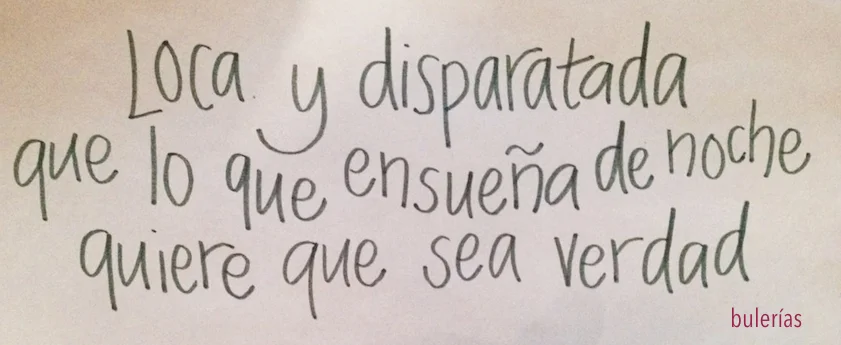 Loca y disparatada
que lo que ensueña de noche
quiere que sea verdad
bulerías